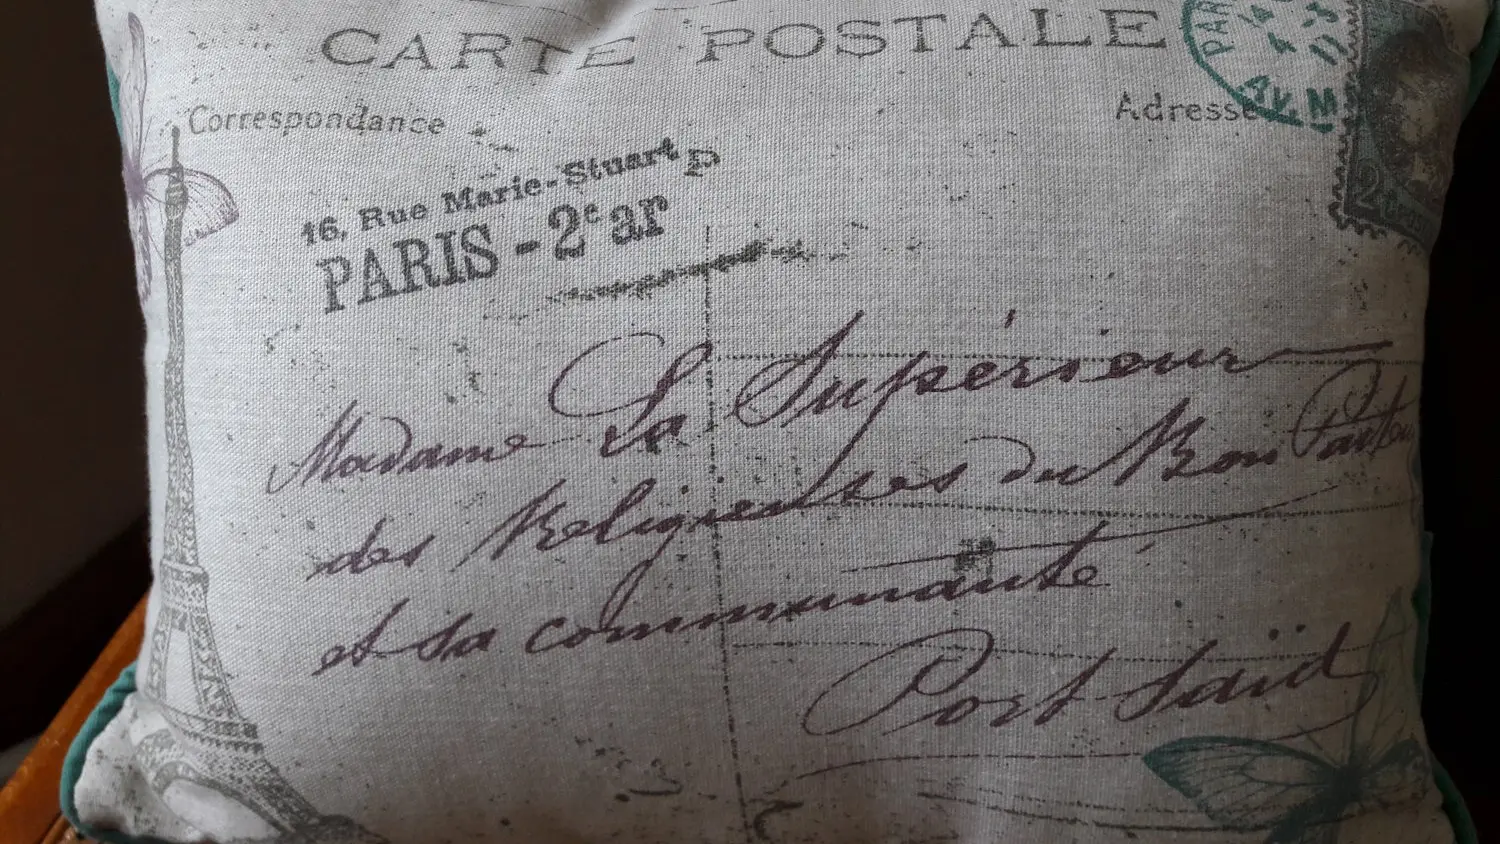 CARTE POSTALE
PAR
AV. M
Correspondance
Adresse
16, Rue Marie-Stuart P
PARIS - 2e ar
2
Madame La Supérieur
des Religieuses du Bon Paste
et sa communauté
Port Saïd